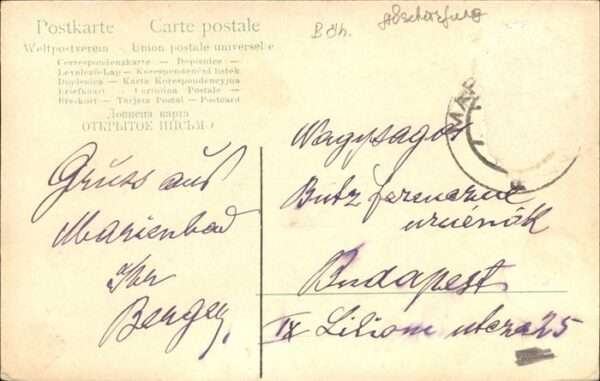 Postkarte Carte postale
Weltpostverein - Union postale universelle
Correspondenzkarte — Dopisnice —
Levelező-Lap — Korespondenční listek
Dopisnica — Karta Korespondencyjna
Briefkaart — Cartolina Postale —
Brevkort — Tarjeta Postal — Postcard
Дописна карта
ОТКРЫТОЕ ПИСЬМО
Böh.
MAR
Gruss aus
Marienbad
Ihr
Berger
Nagysagos
Butz Ferenczné
urnőnek
Budapest
IX Liliom utcza 25